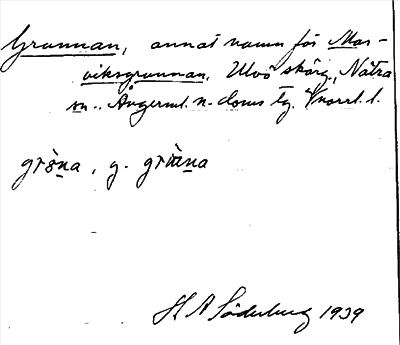 Grunnan, annat namn för Mas-
viksgrunnan, Ulvö skärg., Nätra
sn., Ångerml. n. doms tg. Vnorrl. l.
grøna, g. gruna
H A Söderberg 1939